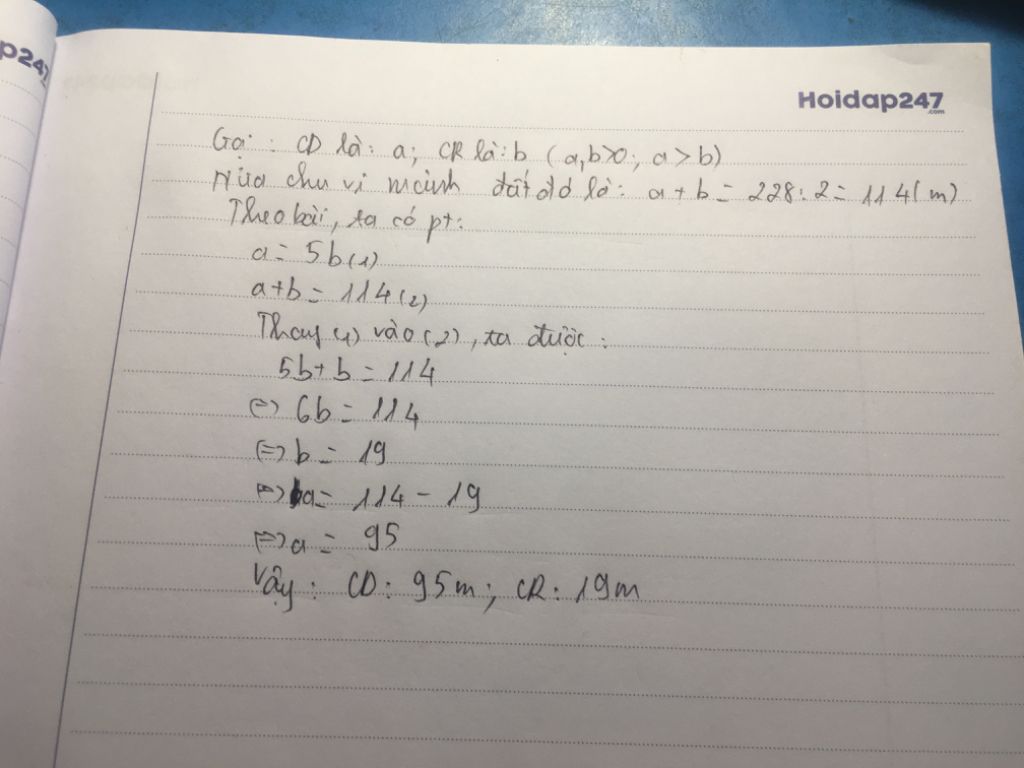 p247
Hoidap247
.com
Gọi : CD là: a; CR là: b (a,b>0; a>b)
Nửa chu vi mảnh đất đó là: a + b = 228 : 2 = 114 (m)
Theo bài, ta có pt:
a = 5b (1)
a+b = 114 (2)
Thay (1) vào (2), ta được:
5b + b = 114
<=> 6b = 114
<=> b = 19
=> a = 114 - 19
<=> a = 95
Vậy : CD : 95m ; CR : 19m